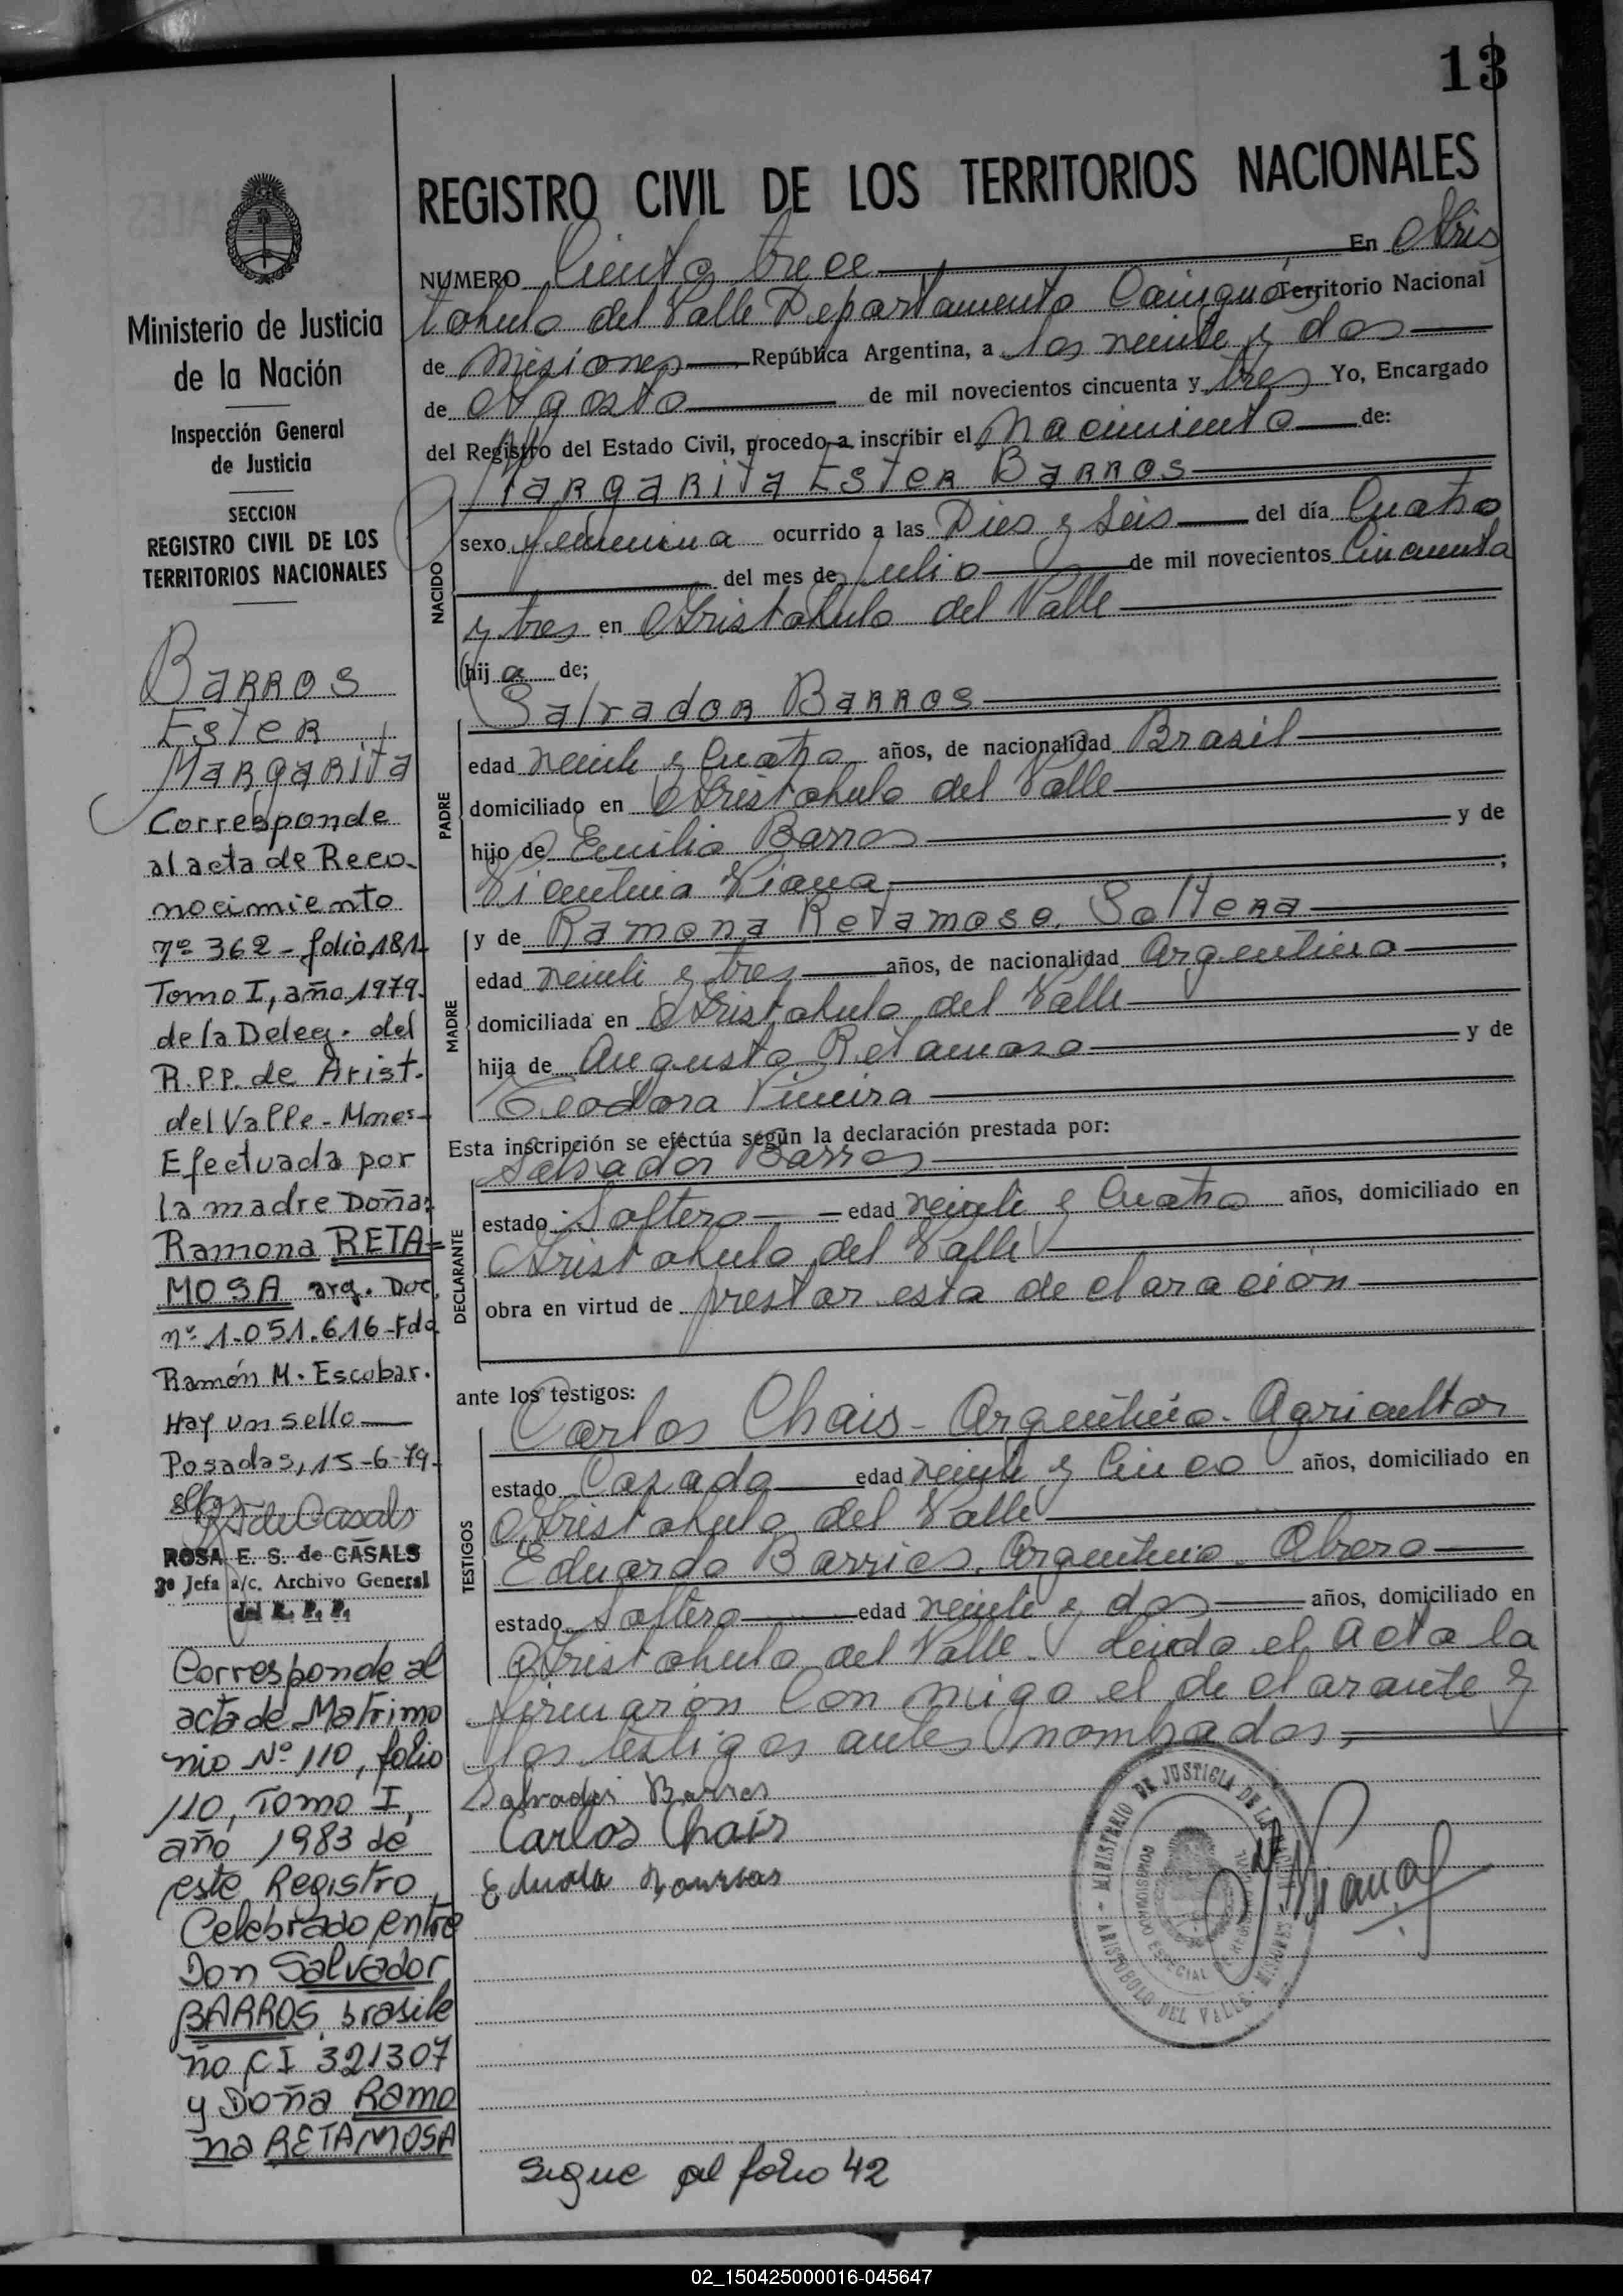 13
REGISTRO CIVIL DE LOS TERRITORIOS NACIONALES
NUMERO Ciento trece En Aris
tobulo del Valle Departamento Cainguás Territorio Nacional
de Misiones República Argentina, a los veinte y dos
de Agosto de mil novecientos cincuenta y tres Yo, Encargado
del Registro del Estado Civil, procedo a inscribir el Nacimiento de:
MARGARITA ESTER BARROS
NACIDO
sexo femenina ocurrido a las Dies y seis del día Cuatro
del mes de Julio de mil novecientos Cincuenta
y tres en Aristobulo del Valle
hij a de;
PADRE
Salvador BARROS
edad veinte y Cuatro años, de nacionalidad Brasil
domiciliado en Aristobulo del Valle
hijo de Emilio Barros y de
Vicentina Viana ;
MADRE
y de Ramona Retamosa. Soltera
edad veinti y tres años, de nacionalidad Argentina
domiciliada en Aristobulo del Valle
hija de Augusto Retamosa y de
Teodora Pineira
Esta inscripción se efectúa según la declaración prestada por:
DECLARANTE
Salvador Barros
estado Soltero edad veinti y Cuatro años, domiciliado en
Aristobulo del Valle
obra en virtud de prestar esta declaracion
ante los testigos:
TESTIGOS
Carlos Chais - Argentino - Agricultor
estado Casado edad veinte y Cinco años, domiciliado en
Aristobulo del Valle
Eduardo Barrios. Argentino. Obrero
estado Soltero edad veinte y dos años, domiciliado en
Aristobulo del Valle. Leida el Acta la
firmaron Con migo el declarante y
los testigos antes nombados,
Salvador Barros
Carlos Chais
MINISTERIO DE JUSTICIA DE LA NACION
ARISTOBOLO DEL VALLE - MISIONES
Sigue al folio 42
Ministerio de Justicia
de la Nación
Inspección General
de Justicia
SECCION
REGISTRO CIVIL DE LOS
TERRITORIOS NACIONALES
BARROS
ESTER
MARGARITA
Corresponde
al acta de Reco-
nocimiento
nº 362 - folio 181-
Tomo I, año 1979-
de la Deleg. del
R.P.P. de Arist.
del Valle - Mnes-
Efectuada por
la madre Doña:
Ramona RETA-
MOSA arg. Doc.
nº 1.051.616 - Fdo
Ramón M. Escobar.
Hay un sello
Posadas, 15-6-79-
ROSA E. S. de CASALS
2º Jefa a/c. Archivo General
del R. P. P.
Corresponde al
acta de Matrimo
nio Nº 110, folio
110, Tomo I,
año 1983 de
este Registro
Celebrado entre
Don Salvador
BARROS brasile
ño CI 321307
y Doña Ramo
na RETAMOSA
02_150425000016-045647